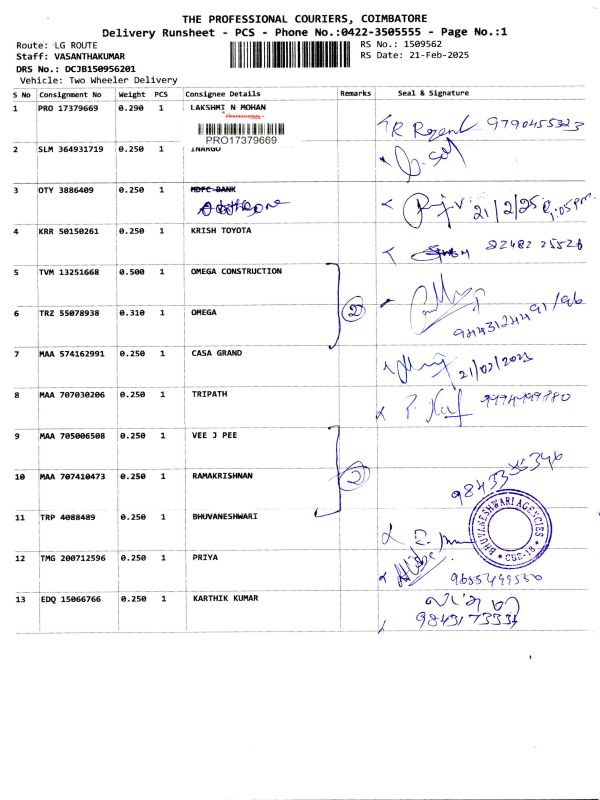 THE PROFESSIONAL COURIERS, COIMBATORE
Delivery Runsheet - PCS - Phone No.:0422-3505555 - Page No.:1
Route: LG ROUTE
RS No.: 1509562
Staff: VASANTHAKUMAR
RS Date: 21-Feb-2025
DRS No.: DCJB150956201
Vehicle: Two Wheeler Delivery
S No Consignment No Weight PCS Consignee Details Remarks Seal & Signature
1 PRO 17379669 0.290 1 LAKSHMI N MOHAN
PRO17379669
9790455323
2 SLM 364931719 0.250 1
3 OTY 3886409 0.250 1 HDFC BANK
21/2/25
4 KRR 50150261 0.250 1 KRISH TOYOTA
5 TVM 13251668 0.500 1 OMEGA CONSTRUCTION
2
6 TRZ 55078938 0.310 1 OMEGA
7 MAA 574162991 0.250 1 CASA GRAND
21/02/2025
8 MAA 707030206 0.250 1 TRIPATH
9 MAA 705006508 0.250 1 VEE J PEE
10 MAA 707410473 0.250 1 RAMAKRISHNAN
2
11 TRP 4088489 0.250 1 BHUVANESHWARI
BHUVANESHWARI AGENCIES
12 TMG 200712596 0.250 1 PRIYA
13 EDQ 15066766 0.250 1 KARTHIK KUMAR